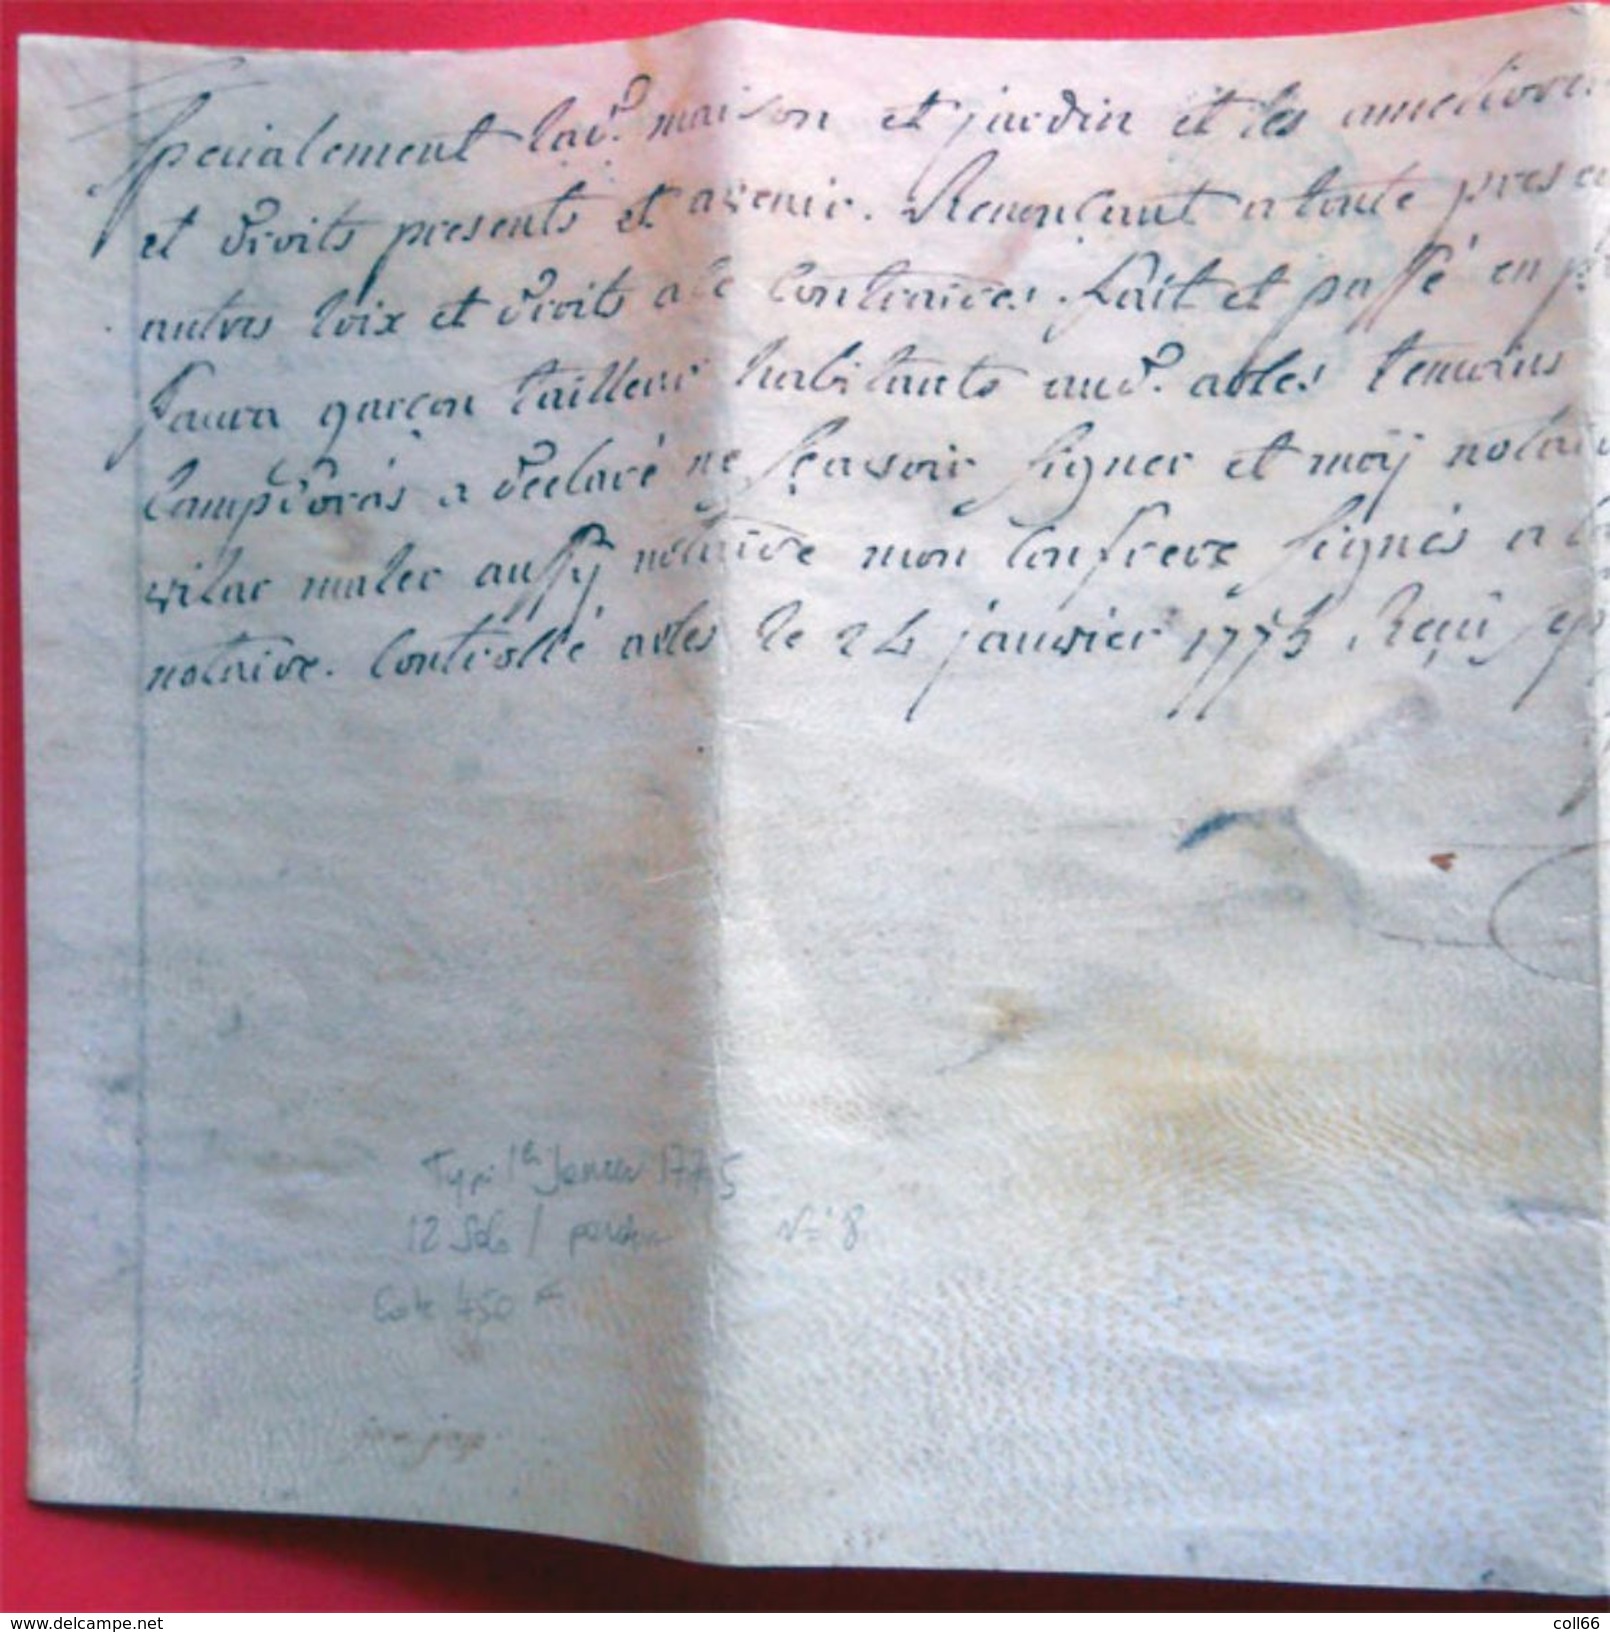 specialement lad.e maison et jardin et les ameliora
et droits presents et avenir. Renonçant a toute prese
autres loix et droits a ce contraires. fait et passé en pr
garçon tailleur habitants aud. arles temoins
Campdoràs a declaré ne sçavoir signer et moÿ notair
vilar maler aussy notaire mon confrere signés a la
notaire. Controllé arles le 24 janvier 1775 Reçu
1er Janvier 1775
12 Sols / N° 8
Cote 450 F
www.delcampe.net
coll66